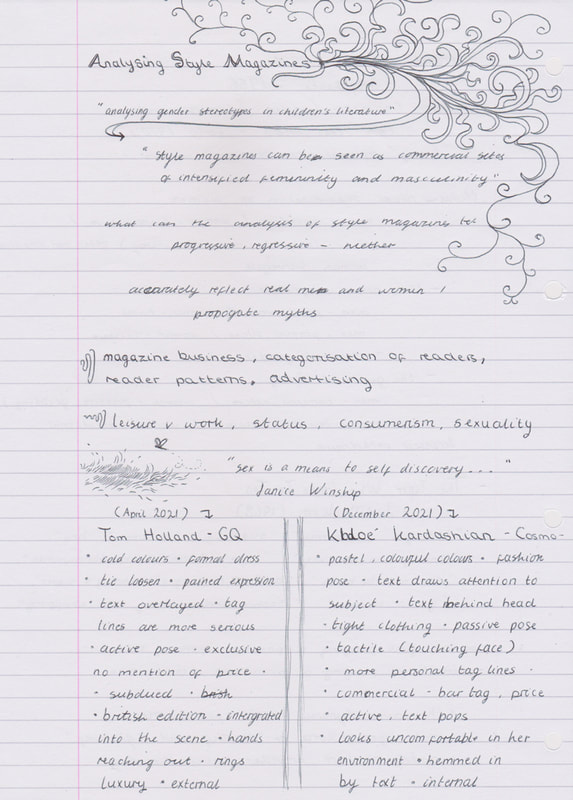 Analysing Style Magazines
"analysing gender stereotypes in children's literature"
"style magazines can be seen as commercial sites
of intensified femininity and masculinity"
what can the analysis of style magazine tel
progressive, regressive - niether
accurately reflect real men and women /
propogate myths
magazine business, categorisation of readers,
reader patterns, advertising
leisure v work, status, consumerism, sexuality
"sex is a means to self discovery..."
Janice Winship
(April 2021)
Tom Holland - GQ
• cold colours • formal dress
• tie loosen • pained expression
• text overlayed • tag
lines are more serious
• active pose • exclusive
no mention of price •
• subdued •
• british edition - intergrated
into the scene • hands
reaching out • rings
luxury • external
(December 2021)
Khloé Kardashian - Cosmo-
• pastel, colourful colours • fashion
pose • text draws attention to
subject • text behind head
• tight clothing • passive pose
• tactile (touching face)
• more personal tag lines •
• commercial - bar tag, price
• active, text pops
• looks uncomfortable in her
environment • hemmed in
by text • internal